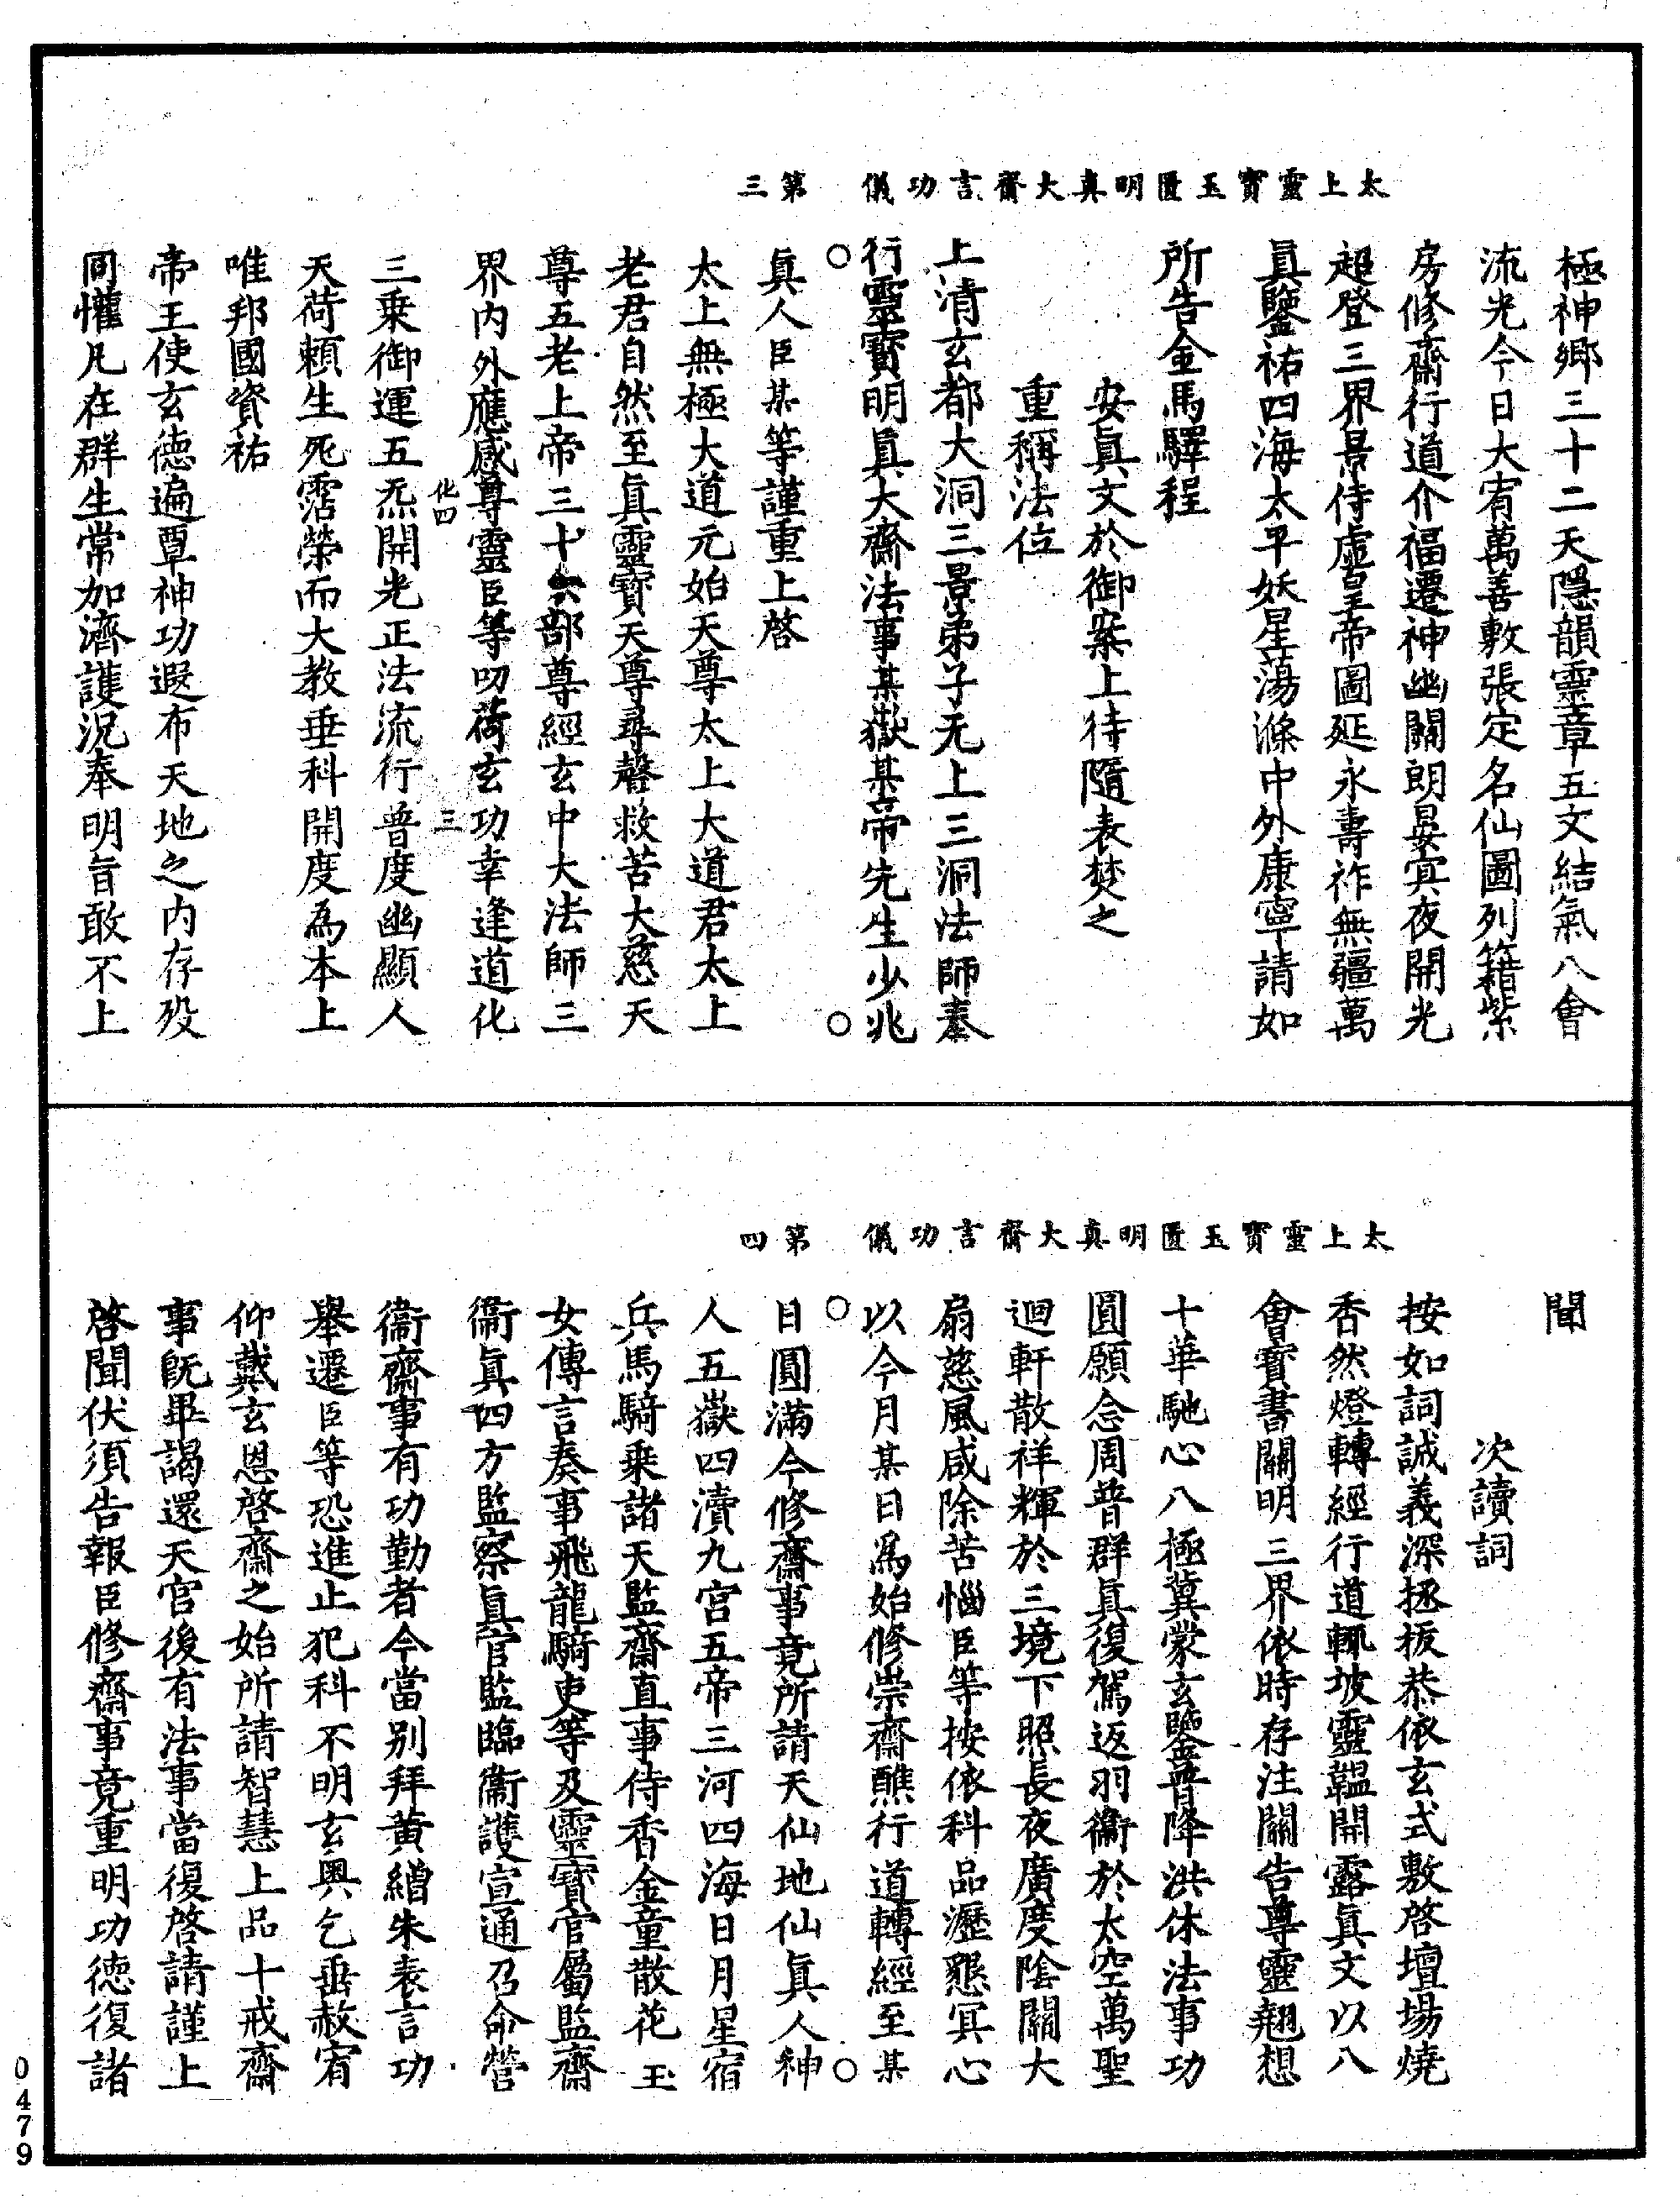 太上靈寶玉匱明真大齋言功儀　第三
極神鄉三十二天隱韻靈章五文結氣八會
流光今日大宥萬善敷張定名仙圖列籍紫
房修齋行道介福遷神幽關朗晏冥夜開光
超登三界景侍虛皇帝圖延永壽祚無疆萬
真鑒祐四海太平妖星蕩滌中外康寧請如
所告金馬驛程
安真文於御案上待隨表焚之
重稱法位
上清玄都大洞三景弟子无上三洞法師奏
行靈寶明真大齋法事某嶽某帝先生少兆
真人臣某等謹重上啓
太上無極大道元始天尊太上大道君太上
老君自然至真靈寶天尊尋聲救苦大慈天
尊五老上帝三十六部尊經玄中大法師三
界內外應感尊靈臣等叨荷玄功幸逢道化
化四　三
三乗御運五炁開光正法流行普度幽顯人
天荷賴生死霑榮而大教垂科開度為本上
唯邦國資祐
帝王使玄德遍覃神功遐布天地之內存歿
同懽凡在群生常加濟護況奉明旨敢不上
太上靈寶玉匱明真大齋言功儀　第四
聞
次讀詞
按如詞誠義深拯拔恭依玄式敷啓壇場燒
香然燈轉經行道輒披靈韞開露真文以八
會寶書關明三界依時存注關告尊靈翹想
十華馳心八極冀蒙玄鑒普降洪休法事功
圓願念周普群真復駕返羽衛於太空萬聖
迴軒散祥輝於三境下照長夜廣度陰關大
扇慈風咸除苦惱臣等按依科品瀝懇冥心
以今月某日為始修崇齋醮行道轉經至某
日圓滿今修齋事竟所請天仙地仙真人神
人五嶽四瀆九宮五帝三河四海日月星宿
兵馬騎乗諸天監齋直事侍香金童散花玉
女傳言奏事飛龍騎吏等及靈寶官屬監齋
衞真四方監察真官監臨衞護宣通召命營
衞齋事有功勤者今當別拜黃繒朱表言功
舉遷臣等恐進止犯科不明玄輿乞垂赦宥
仰戴玄恩啓齋之始所請智慧上品十戒齋
事既畢謁還天官後有法事當復啓請謹上
啓聞伏須告報臣修齋事竟重明功德復諸
0479